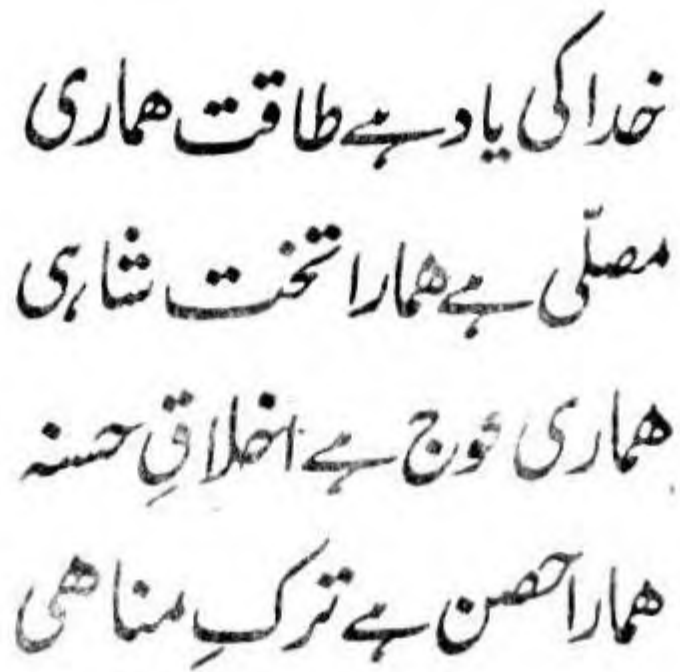 خدا کی یاد ہے طاقت ھماری
مصلّی ہے ھمارا تخت شاہی
ھماری فوج ہے اخلاقِ حسنہ
ھمارا حصن ہے ترکِ مناھی